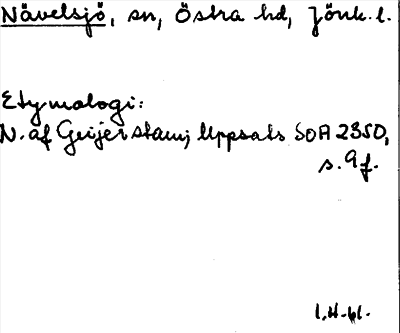 Nävelsjö, sn, Östra hd, Jönk. l.
Etymologi:
N. af Geijerstam, Uppsats SOA 2350,
s. 9 f.